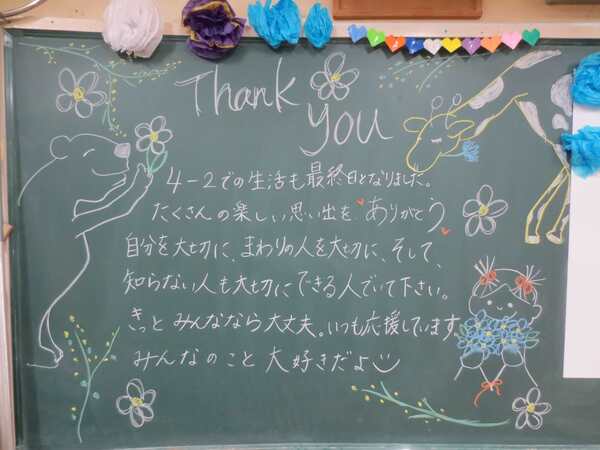 Thank
you
4-2での生活も最終日となりました。
たくさんの楽しい思い出を ありがとう
自分を大切に、まわりの人を大切に、そして、
知らない人も大切にできる人でいて下さい。
きっと みんななら大丈夫。いつも応援しています
みんなのこと 大好きだよ